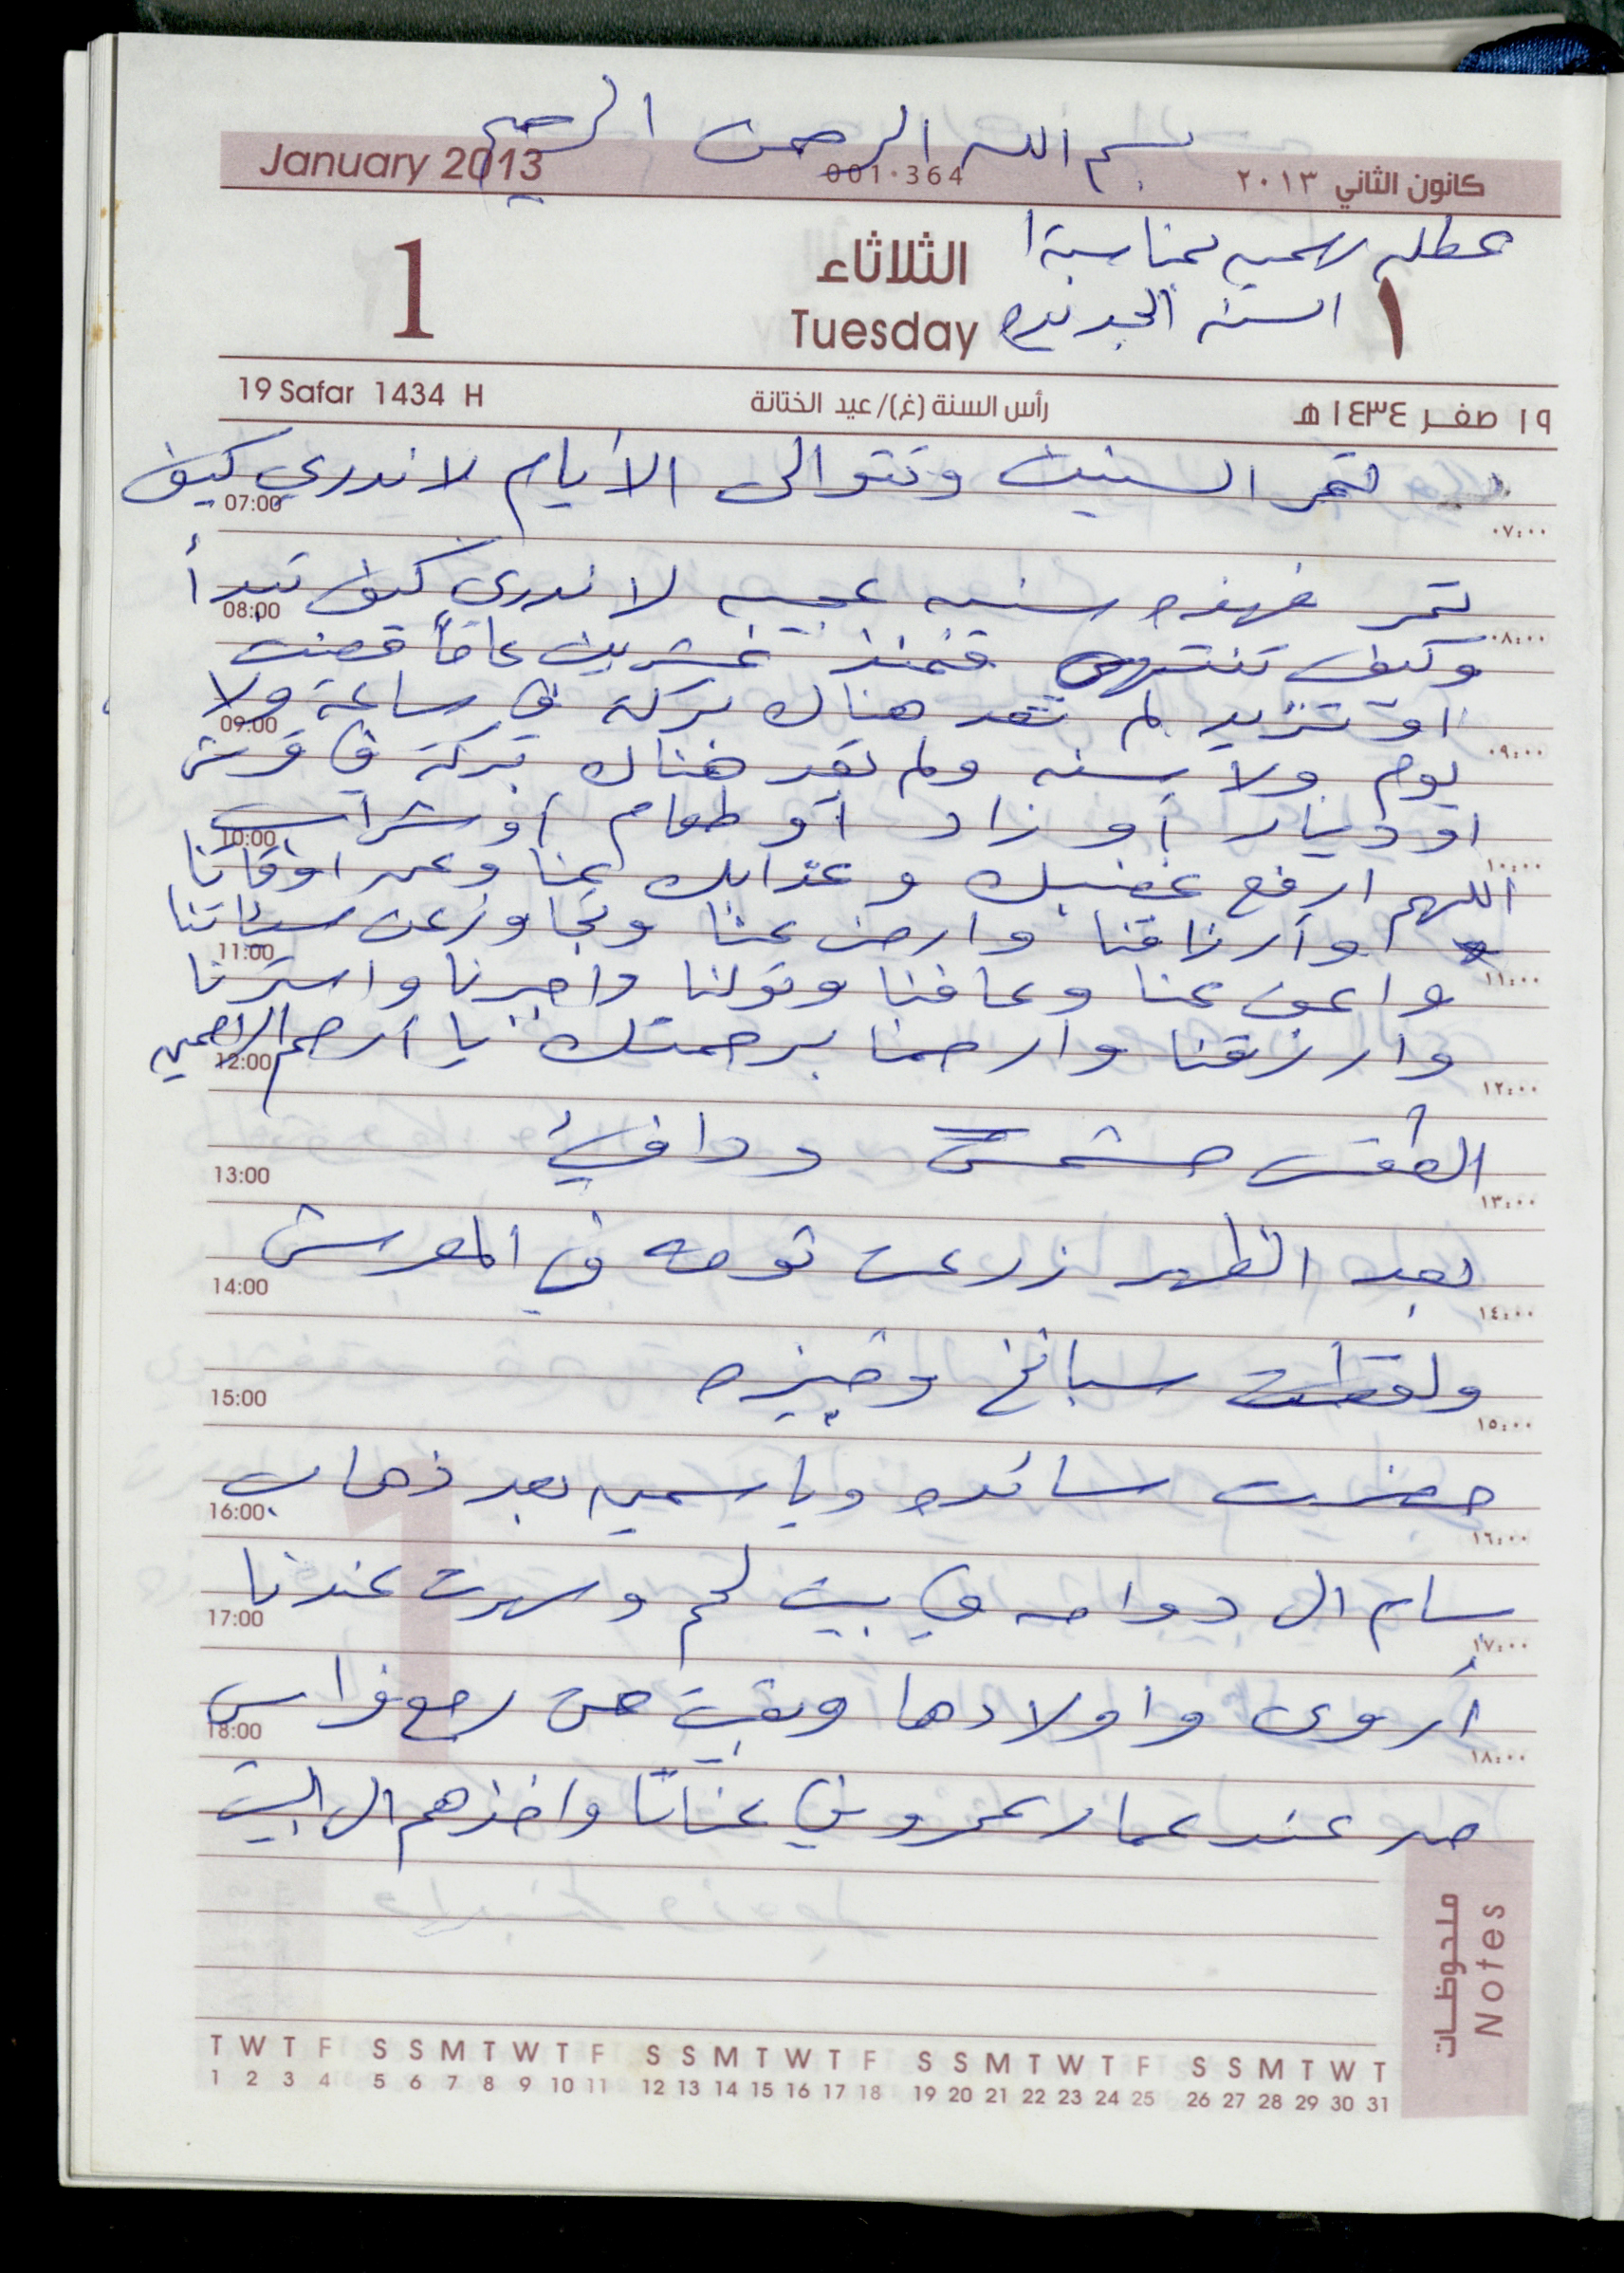 بسم الله الرحمن الرحيم
January 2013
001·364
كانون الثاني ٢٠١٣
عطله رسميه بمناسبة
1
الثلاثاء
١
السنه الجديده
Tuesday
19 Safar 1434 H
رأس السنة (غ)/عيد الختانة
١٩ صفر ١٤٣٤ هـ
تمر السنين وتتوالى الأيام لا ندري كيف
07:00 ٠٧:٠٠
تمر فهذه سنه عجيبه لا ندري كيف تبدأ
08:00 ٠٨:٠٠
وكيف تنتهي فمنذ عشرين عاماً قضت
او تزيد لم تعد هناك بركة في ساعة ولا
09:00 ٠٩:٠٠
يوم ولا سنه ولم تعد هناك بركة في قرش
او دينار أو زاد أو طعام أو شراب
10:00 ١٠:٠٠
اللهم ارفع غضبك وعذابك عنا وعن اوقاتنا
وأرزاقنا وارض عنا وتجاوز عن سيئاتنا
11:00 ١١:٠٠
واعف عنا وعافنا وتولنا واجبرنا واسترنا
وارزقنا وارحمنا برحمتك يا أرحم الراحمين
12:00 ١٢:٠٠
الطقس مشمس ودافئ
13:00 ١٣:٠٠
بعد الظهر زرعت ثومه في المعرش
14:00 ١٤:٠٠
ولقطت سبانخ وخبيزه
15:00 ١٥:٠٠
حضرت سائده وياسمين بعد ذهاب
16:00 ١٦:٠٠
بسام الى دوامه في بيت لحم وسهرت عندنا
17:00 ١٧:٠٠
أروى واولادها وبقيت حتى رجع فراس
18:00 ١٨:٠٠
من عند عمار عمرو في عناتا واخذهم الى البيت
ملحوظات
Notes
T W T F S S M T W T F S S M T W T F S S M T W T F S S M T W T
1 2 3 4 5 6 7 8 9 10 11 12 13 14 15 16 17 18 19 20 21 22 23 24 25 26 27 28 29 30 31